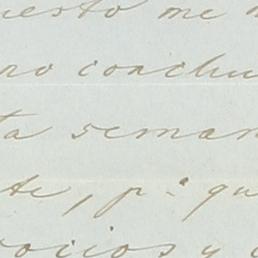 uesto me
no conclu
ta seman
te, p.ª qu
ocios y